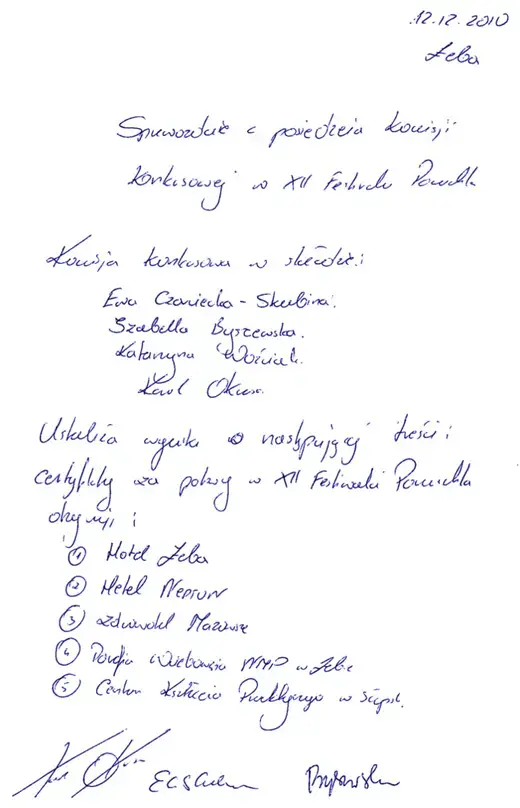 12.12.2010
Łeba
Sprawozdanie z posiedzenia Komisji
Konkursowej w XII Festiwalu Pomuchla
Komisja konkursowa w składzie:
Ewa Czarniecka - Skubina.
Izabella Byszewska.
Katarzyna Woźniak.
Karol Okrasa.
Ustaliła wyniki o następującej treści:
certyfikaty za potrawy w XII Festiwalu Pomuchla
otrzymują:
① Hotel Łeba
② Hotel Neptun
③ Zdrowotel Mazowsze
④ Parafia Wniebowzięcia NMP w Łebie
⑤ Centrum Kształcenia Praktycznego w Słupsku.